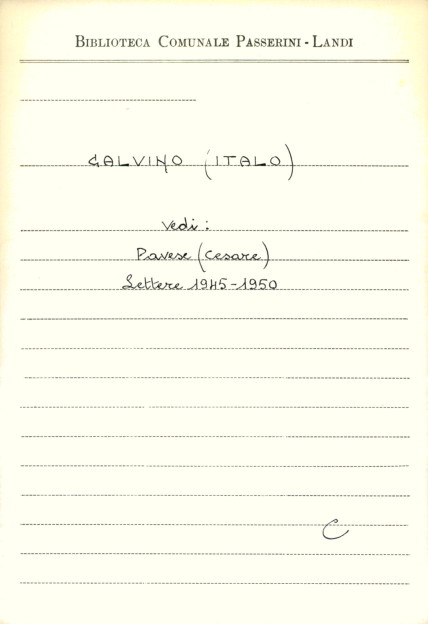 BIBLIOTECA COMUNALE PASSERINI - LANDI
CALVINO (ITALO)
vedi :
Pavese (Cesare)
Lettere 1945-1950
C